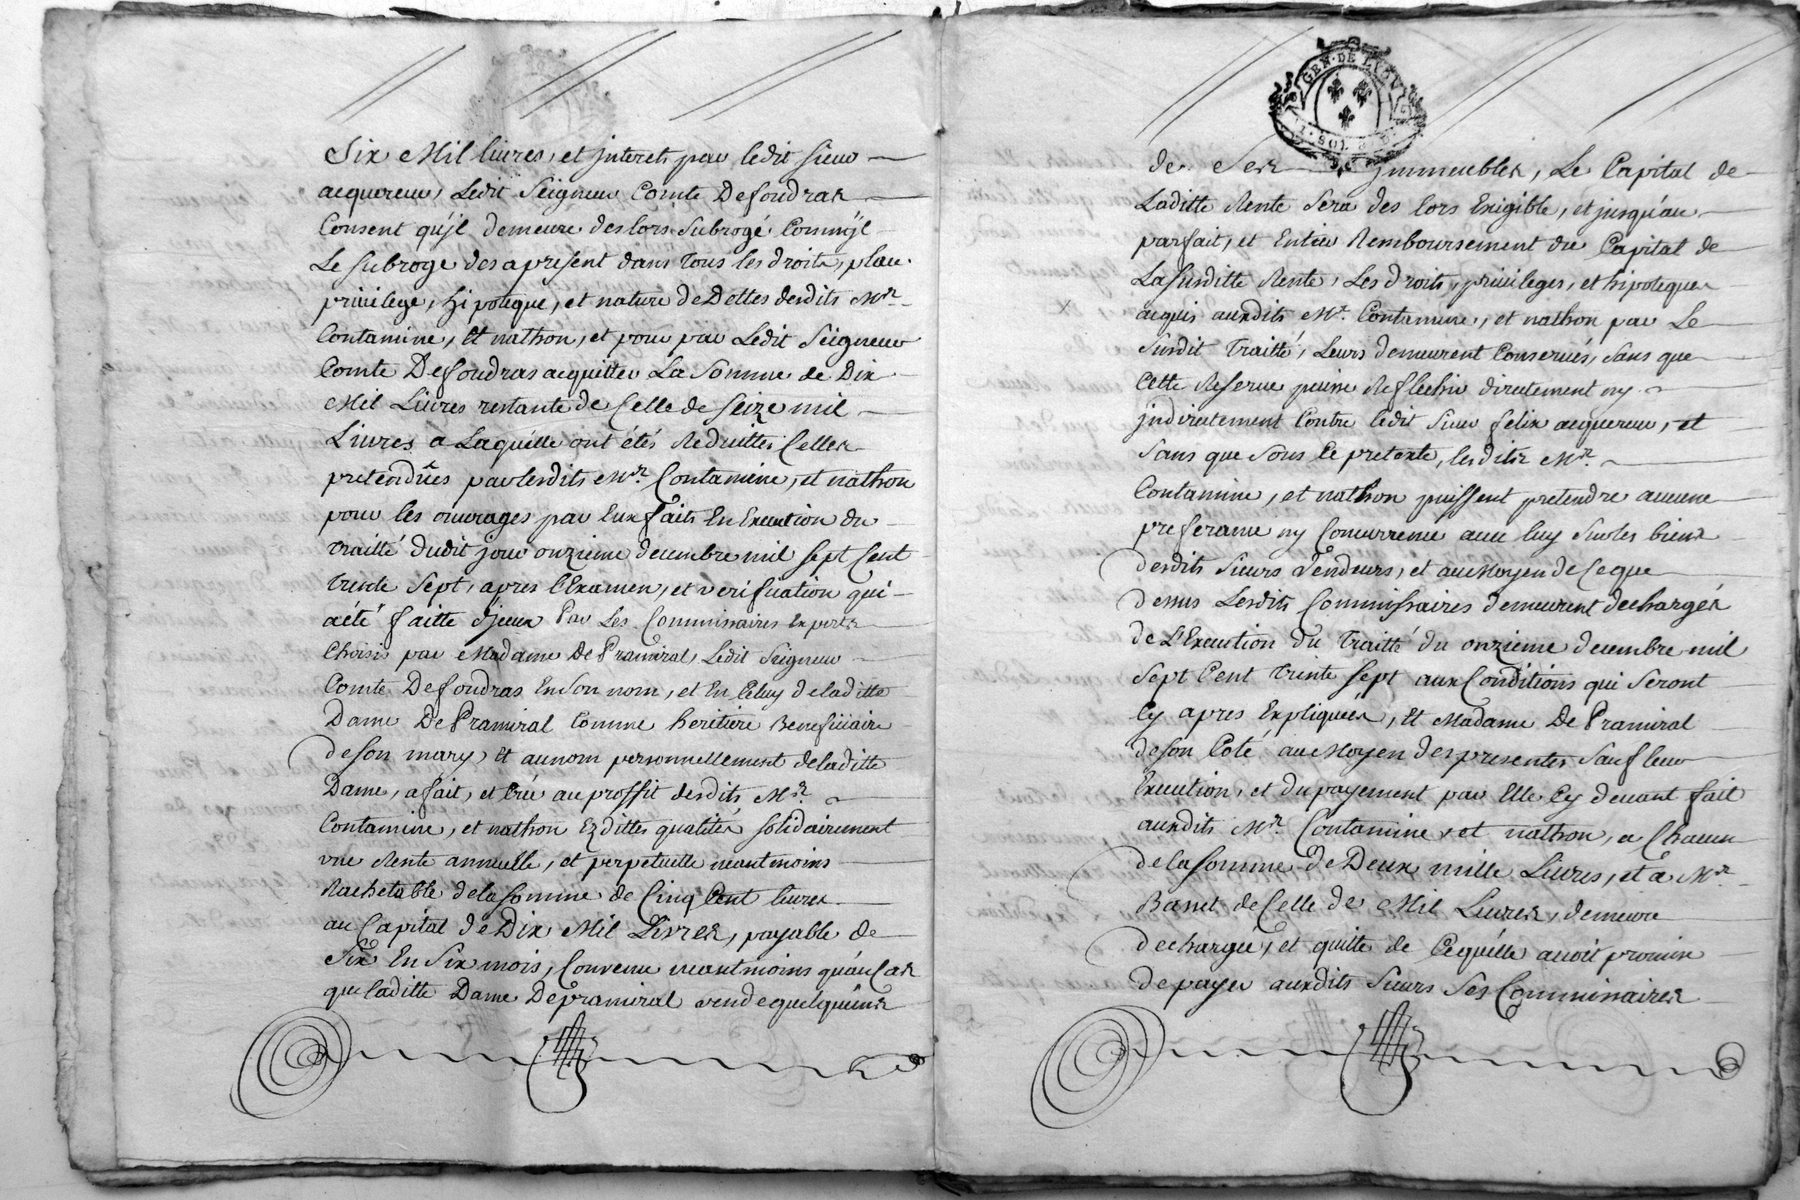 Six Mil livres, et jnterets par ledit sieur
acquereur, Ledit Seigneur Comte Defoudras
Consent qu'jl demeure des lors Subrogé Comm'jl
Le Subroge des aprésent dans tous les droits, place
privilege, hipoteque, et nature de Dettes desdits Mrs
Contamine, Et nathon, et pour par Ledit Seigneur
Comte Defoudras acquitter La Somme de Dix
Mil Livres restante de Celle de Seize mil
Livres a Laquelle ont étés Reduittes Celles
pretendûes par lesdits Mrs Contamine, et nathon
pour les ouvrages par Eux faits En Execution du
traitté dudit jour onzieme decembre mil Sept Cent
trente Sept, apres l'Examen, et verification qui
a été faitte d'jceux Par Les Commissaires Experts
Choisi par Madame De Pramiral, Ledit Seigneur
Comte Defoudras En son nom, et En Celuy de laditte
Dame De Pramiral Comme heritiere Beneficiaire
de son mary, Et au nom personnellement de laditte
Dame, a fait, et Créé au proffit desdits Mrs
Contamine, et nathon Ezdittes qualités solidairement
une Rente annuelle, et perpetuelle neantmoins
Rachetable de la Somme de Cinq Cent livres
au Capital de Dix Mil Livres, payable de
Six En Six mois, Convenu neantmoins qu'au Cas
que laditte Dame De pramiral vende quelqu'uns
GEN. DE LYON
de Ses jmmeubles, Le Capital de
Laditte Rente Sera des lors Exigible, et jusqu'au
parfait, et Entier Remboursement du Capital de
La Susditte Rente, Les droits, privileges, et hipoteques
acquis auxdits Mrs Contamine, et nathon par Le
Susdit traitté, Leurs demeurent Conservés, Sans que
Cette Reserve puisse Reflechir directement ny
jndirectement Contre ledit Sieur felix acquereur, et
Sans que Sous Ce pretexte, lesdits Mrs
Contamine, et nathon puissent pretendre aucune
preferance ny Concurrence avec luy Sur les biens
desdits Sieurs Vendeurs, et au Moyen de Ce que
dessus Lesdits Commissaires demeurent dechargés
de L'Execution du traitté du onzieme decembre mil
Sept Cent trente Sept aux Conditions qui Seront
Cy apres Expliquées, Et Madame De Pramiral
de son Coté au Moyen des presentes Sauf leur
Execution, et du payement par Elle Cy devant fait
auxdits Mrs Contamine et nathon, a Chacun
de la Somme de Deux mille Livres, et a Mr
Banet de Celle de Mil Livres, demeure
dechargée, et quitte de Ce qu'elle avoit promis
de payer auxdits Sieurs Ses Commissaires